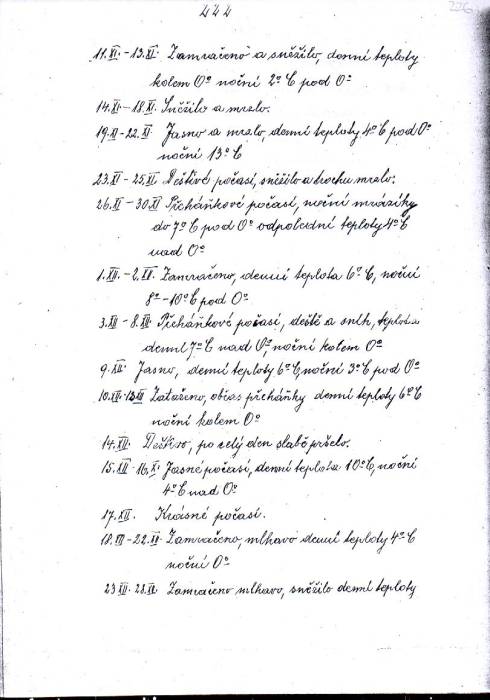 444
226
11.XI.-13.XI. Zamračeno a sněžilo, denní teploty
kolem 0° noční 2°C pod 0°
14.XI.-18.XI. Sněžilo a mrzlo.
19.XI-22.XI Jasno a mrzlo, denní teploty 4°C pod 0°
noční 13°C
23.XI-25.XI Deštivé počasí, sněžilo a trochu mrzlo.
26.XI-30.XI Přeháňkové počasí, noční mrazíky
do 7°C pod 0° odpolední teploty 4°C
nad 0°
1.XII.-2.XII. Zamračeno, denní teplota 6°C, noční
8°-10°C pod 0°
3.XII-8.XII. Přeháňkové počasí, deště a sníh, teplota
denní 7°C nad 0°, noční kolem 0°
9.XII. Jasno, denní teploty 6°C, noční 3°C pod 0°
10.XII-13.XII Zataženo, občas přeháňky denní teploty 6°C
noční kolem 0°
14.XII. Deštivo, po celý den slabě pršelo.
15.XII-16.X. Jasné počasí, denní teplota 10°C, noční
4°C nad 0°
17.XII. Krásné počasí.
18.XII-22.XII. Zamračeno, mlhavo denní teploty 4°C
noční 0°
23.XII. 28.XII. Zamračeno mlhavo, sněžilo denní teploty